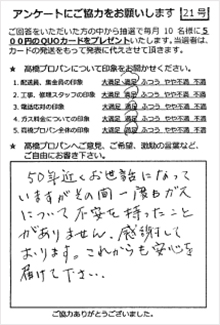 アンケートにご協力をお願いします 21号
ご回答をいただいた方の中から抽選で毎月10名様に5
00円のQUOカードをプレゼントいたします。当選者は、
カードの発送をもって発表に代えさせて頂きます。
★ 高橋プロパンについて印象をお聞かせください。
1. 配送員、集金員の印象 大満足 満足 ふつう やや不満 不満
2. 工事、修理スタッフの印象 大満足 満足 ふつう やや不満 不満
3. 電話応対の印象 大満足 満足 ふつう やや不満 不満
4. ガス料金についての印象 大満足 満足 ふつう やや不満 不満
5. 高橋プロパン全体の印象 大満足 満足 ふつう やや不満 不満
★ 高橋プロパンへご意見、ご希望、激励の言葉など、
ご自由にお書き下さい。
50年近くお世話になって
いますがその間一度もガス
について不安を持ったこと
がありません。感謝して
おります。これからも安心を
届けて下さい。
ご協力ありがとうございました。